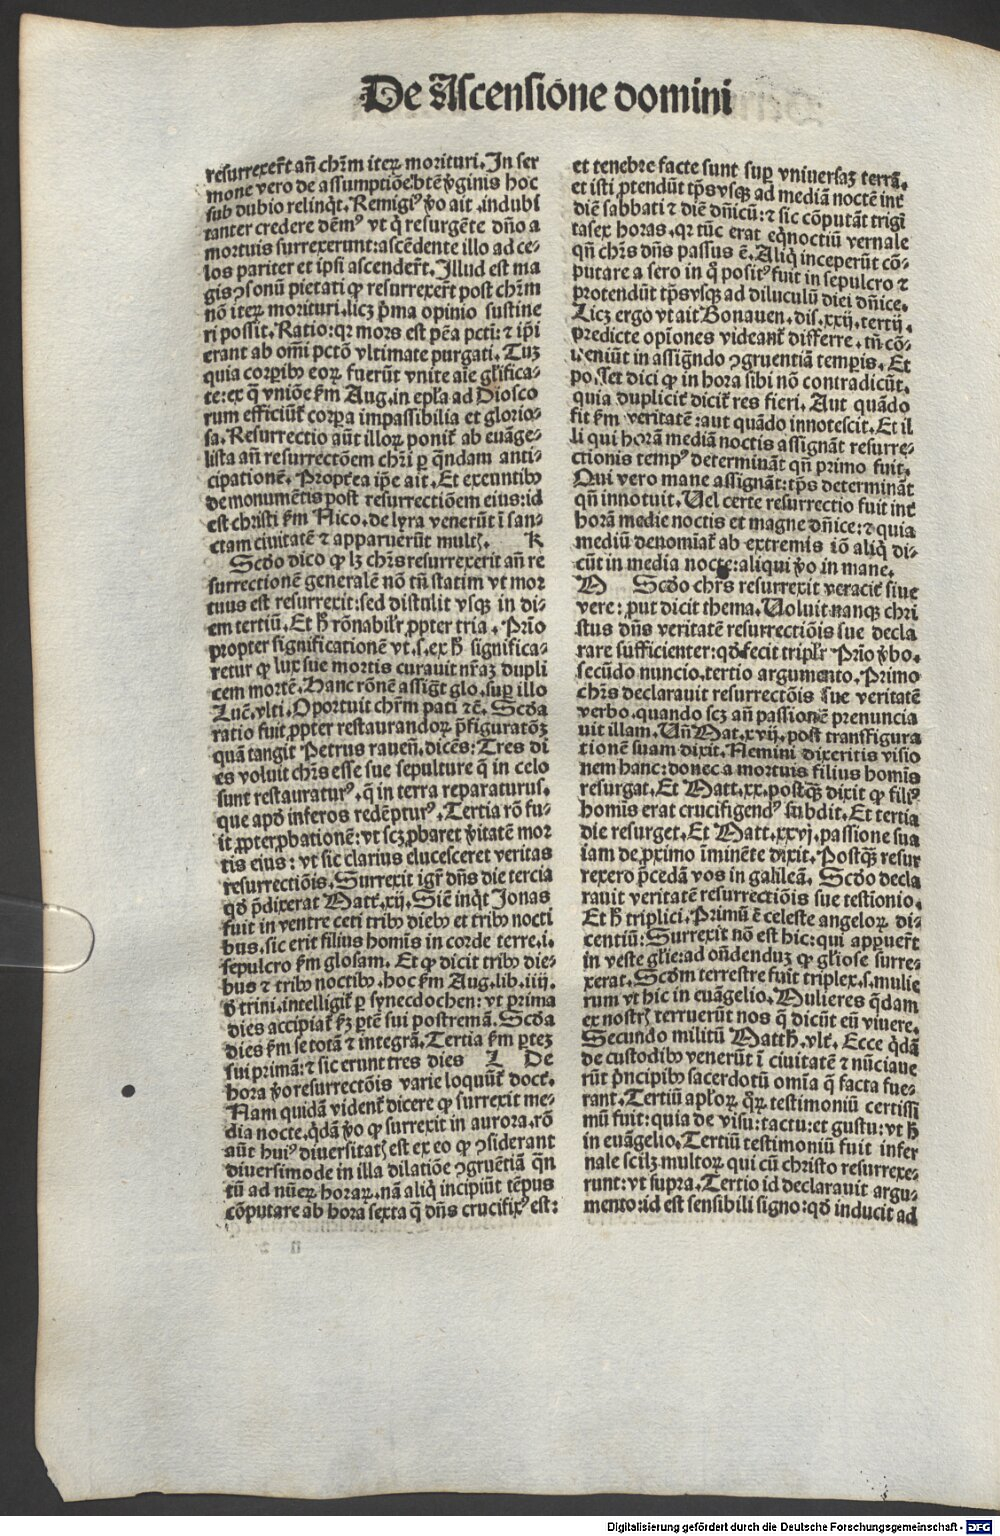 De Ascensiōne domini
resurrexer̄t añ chr̄m iteꝝ morituri. In ser
mone vero de assumptiōe btē v̓ginis hoc
sub dubio relinq̄t. Remigiꝰ v̓o ait. indubi
tanter credere dēmꝰ vt q̇ resurgēte dño a
mortuis surrexerunt: ascēdente illo ad ce-
los pariter et ipsi ascender̄t. Illud est ma
gis ꝯsonū pietati ꝙ resurrexer̄t post chr̄m
nō iteꝝ morituri. licꝫ p̄ma opinio sustine
ri possit. Ratio: qꝛ mors est pēa pcti: ⁊ ip̄i
erant ab om̄i pctō vltimate purgati. Tuꝫ
quia corꝑibꝰ eoꝝ fuerūt vnite aīe gl̄ifica-
te: ex q̄ vniōe ẜm Aug. in epl̄a ad Diosco
rum efficiūt᷑ corꝑa impassibilia et glorio-
sa. Resurrectio aūt illoꝝ ponit᷑ ab euāge-
lista añ resurrectōem chr̄i ꝑ q̄ndam anti-
cipationē. Propt̄ea ip̄e ait. Et exeuntibꝰ
de monumētis post resurrectiōem eius: id
est christi ẜm Nico. de lyra venerūt ī san-
ctam ciuitatē ⁊ apparuerūt multꝭ. K
Scd̄o dico ꝙ lꝫ chr̄s resurrexerit añ re
surrectionē generalē nō tn̄ statim vt mor
tuus est resurrexit: sed distulit vsqꝫ in di-
em tertiū. Et h̄ rōnabilr̄ ꝓpter tria. Prīo
propter significationē vt. s. ex h̄ significa-
retur ꝙ lux sue mortis curauit nr̄aꝫ dupli
cem mortē. Hanc rōnē assigt̄ glo. suꝑ illo
Luc̄. vlti. Oportuit chr̄m pati ⁊c̄. Scd̄a
ratio fuit ꝓpter restaurandoꝝ p̄figuratōꝫ
quā tangit Petrus raueñ. dicēs: Tres di
es voluit chr̄s esse sue sepulture q̄ in celo
sunt restauraturꝰ. q̄ in terra reparaturus.
que apd̄ inferos redēpturꝰ. Tertia rō fu-
it ꝓpter ꝓbationē: vt scꝫ ꝓbaret v̓itatē mor
tis eius: vt sic clarius elucesceret veritas
resurrectiōis. Surrexit igr̄ dn̄s die tercia
qd̄ p̄dixerat Matt̄. xij. Sic̄ inq̇t Jonas
fuit in ventre ceti tribꝰ diebꝰ et tribꝰ nocti
bus. sic erit filius homīs in corde terre. i.
sepulcro ẜm glosam. Et ꝙ dicit tribꝰ die-
bus ⁊ tribꝰ noctibꝰ. hoc ẜm Aug. lib. iiij.
d̓ trini. intelligit᷑ ꝑ synecdochen: vt prima
dies accipiat᷑ ẜꝫ ꝑtē sui postremā. Scd̄a
dies ẜm se totā ⁊ integrā. Tertia ẜm ꝑteꝫ
sui primā: ⁊ sic erunt tres dies L De
hora v̓o resurrectōis varie loquūt᷑ doct̄.
Nam quidā vident᷑ dicere ꝙ surrexit me-
dia nocte. q̇dā v̓o ꝙ surrexit in aurora. rō
aūt huiꝰ diuersitatꝭ est ex eo ꝙ ꝯsiderant
diuersimode in illa dilatiōe ꝯgruētiā q̄n
tū ad nūeꝝ horaꝝ. nā aliq̇ incipiūt tēpus
cōputare ab hora sexta q̄ dn̄s crucifixꝰ est:
et tenebre facte sunt suꝑ vniuersaꝫ terrā.
et isti ꝓtendūt tp̄s vsqꝫ ad mediā noctē int̄
diē sabbati ⁊ diē dn̄icū: ⁊ sic cōputāt trigī
tasex horas. qꝛ tūc erat eq̇noctiū vernale
qn̄ chr̄s dn̄s passus ē. Aliq̇ inceperūt cō-
putare a sero in q̇ positꝰ fuit in sepulcro ⁊
protendūt tp̄s vsqꝫ ad diluculū diei dn̄ice.
Licꝫ ergo vt ait Bonauen. dis. xxij. tertij.
predicte opiōnes videant᷑ differre. tn̄ cō-
ueniūt in assigndo ꝯgruentiā temꝑis. Et
posset dici ꝙ in hora sibi nō contradicūt.
quia duplicit᷑ dicit᷑ res fieri. Aut quādo
fit ẜm veritatē: aut quādo innotescit. Et il
li qui horā mediā noctis assignāt resurre-
ctionis tempꝰ determināt qn̄ primo fuit.
Qui vero mane assignāt: tp̄s determināt
qn̄ innotuit. Uel certe resurrectio fuit int̄
horā medie noctis et magne dn̄ice: ⁊ quia
mediū denomīat᷑ ab extremis iō aliq̇ di-
cūt in media nocte: aliqui v̓o in mane.
M Scd̄o chr̄s resurrexit veracit᷑ siue
vere: ꝓut dicit thema. Uoluit nanqꝫ chri
stus dn̄s veritatē resurrectiōis sue decla
rare sufficienter: qd̄ fecit triplr̄ Prīo v̓bo.
secūdo nuncio. tertio argumento. Primo
chr̄s declarauit resurrectōis sue veritatē
verbo. quando scꝫ añ passionē prenuncia
uit illam. Uñ Mat. xvij. post transfigura
tionē suam dixit. Nemini dixeritis visio
nem hanc: donec a mortuis filius homīs
resurgat. Et Matt. xx. postqꝫ dixit ꝙ filiꝰ
homīs erat crucifigendꝰ subdit. Et tertia
die resurget. Et Matt. xxvj. passione sua
iam de ꝓximo īminēte dixit. Postqꝫ resur
rexero p̄cedā vos in galileā. Scd̄o decla
rauit veritatē resurrectiōis sue testionio.
Et h̄ triplici. Primū ē celeste angeloꝝ di-
centiū: Surrexit nō est hic: qui apꝑuer̄t
in veste glīe: ad on̄denduꝫ ꝙ gl̄iose surre-
xerat. Scd̄m terrestre fuit triplex. s. mulie
rum vt hic in euāgelio. Mulieres q̄dam
ex nostrꝭ terruerūt nos q̄ dicūt eū viuere.
Secundo militū Matth̄. vlt̄. Ecce q̇dā
de custodibꝰ venerūt ī ciuitatē ⁊ nūciaue
rūt p̄ncipibꝰ sacerdotū om̄ia q̄ facta fue-
rant. Tertiū apl̄oꝝ q̇ꝝ testimoniū certissi
mū fuit: quia de visu: tactu: et gustu: vt h̄
in euāgelio. Tertiū testimoniū fuit infer
nale scilꝫ multoꝝ qui cū christo resurrexe-
runt: vt supra. Tertio id declarauit argu-
mento: id est sensibili signo: qd̄ inducit ad
Digitalisierung gefördert durch die Deutsche Forschungsgemeinschaft - DFG